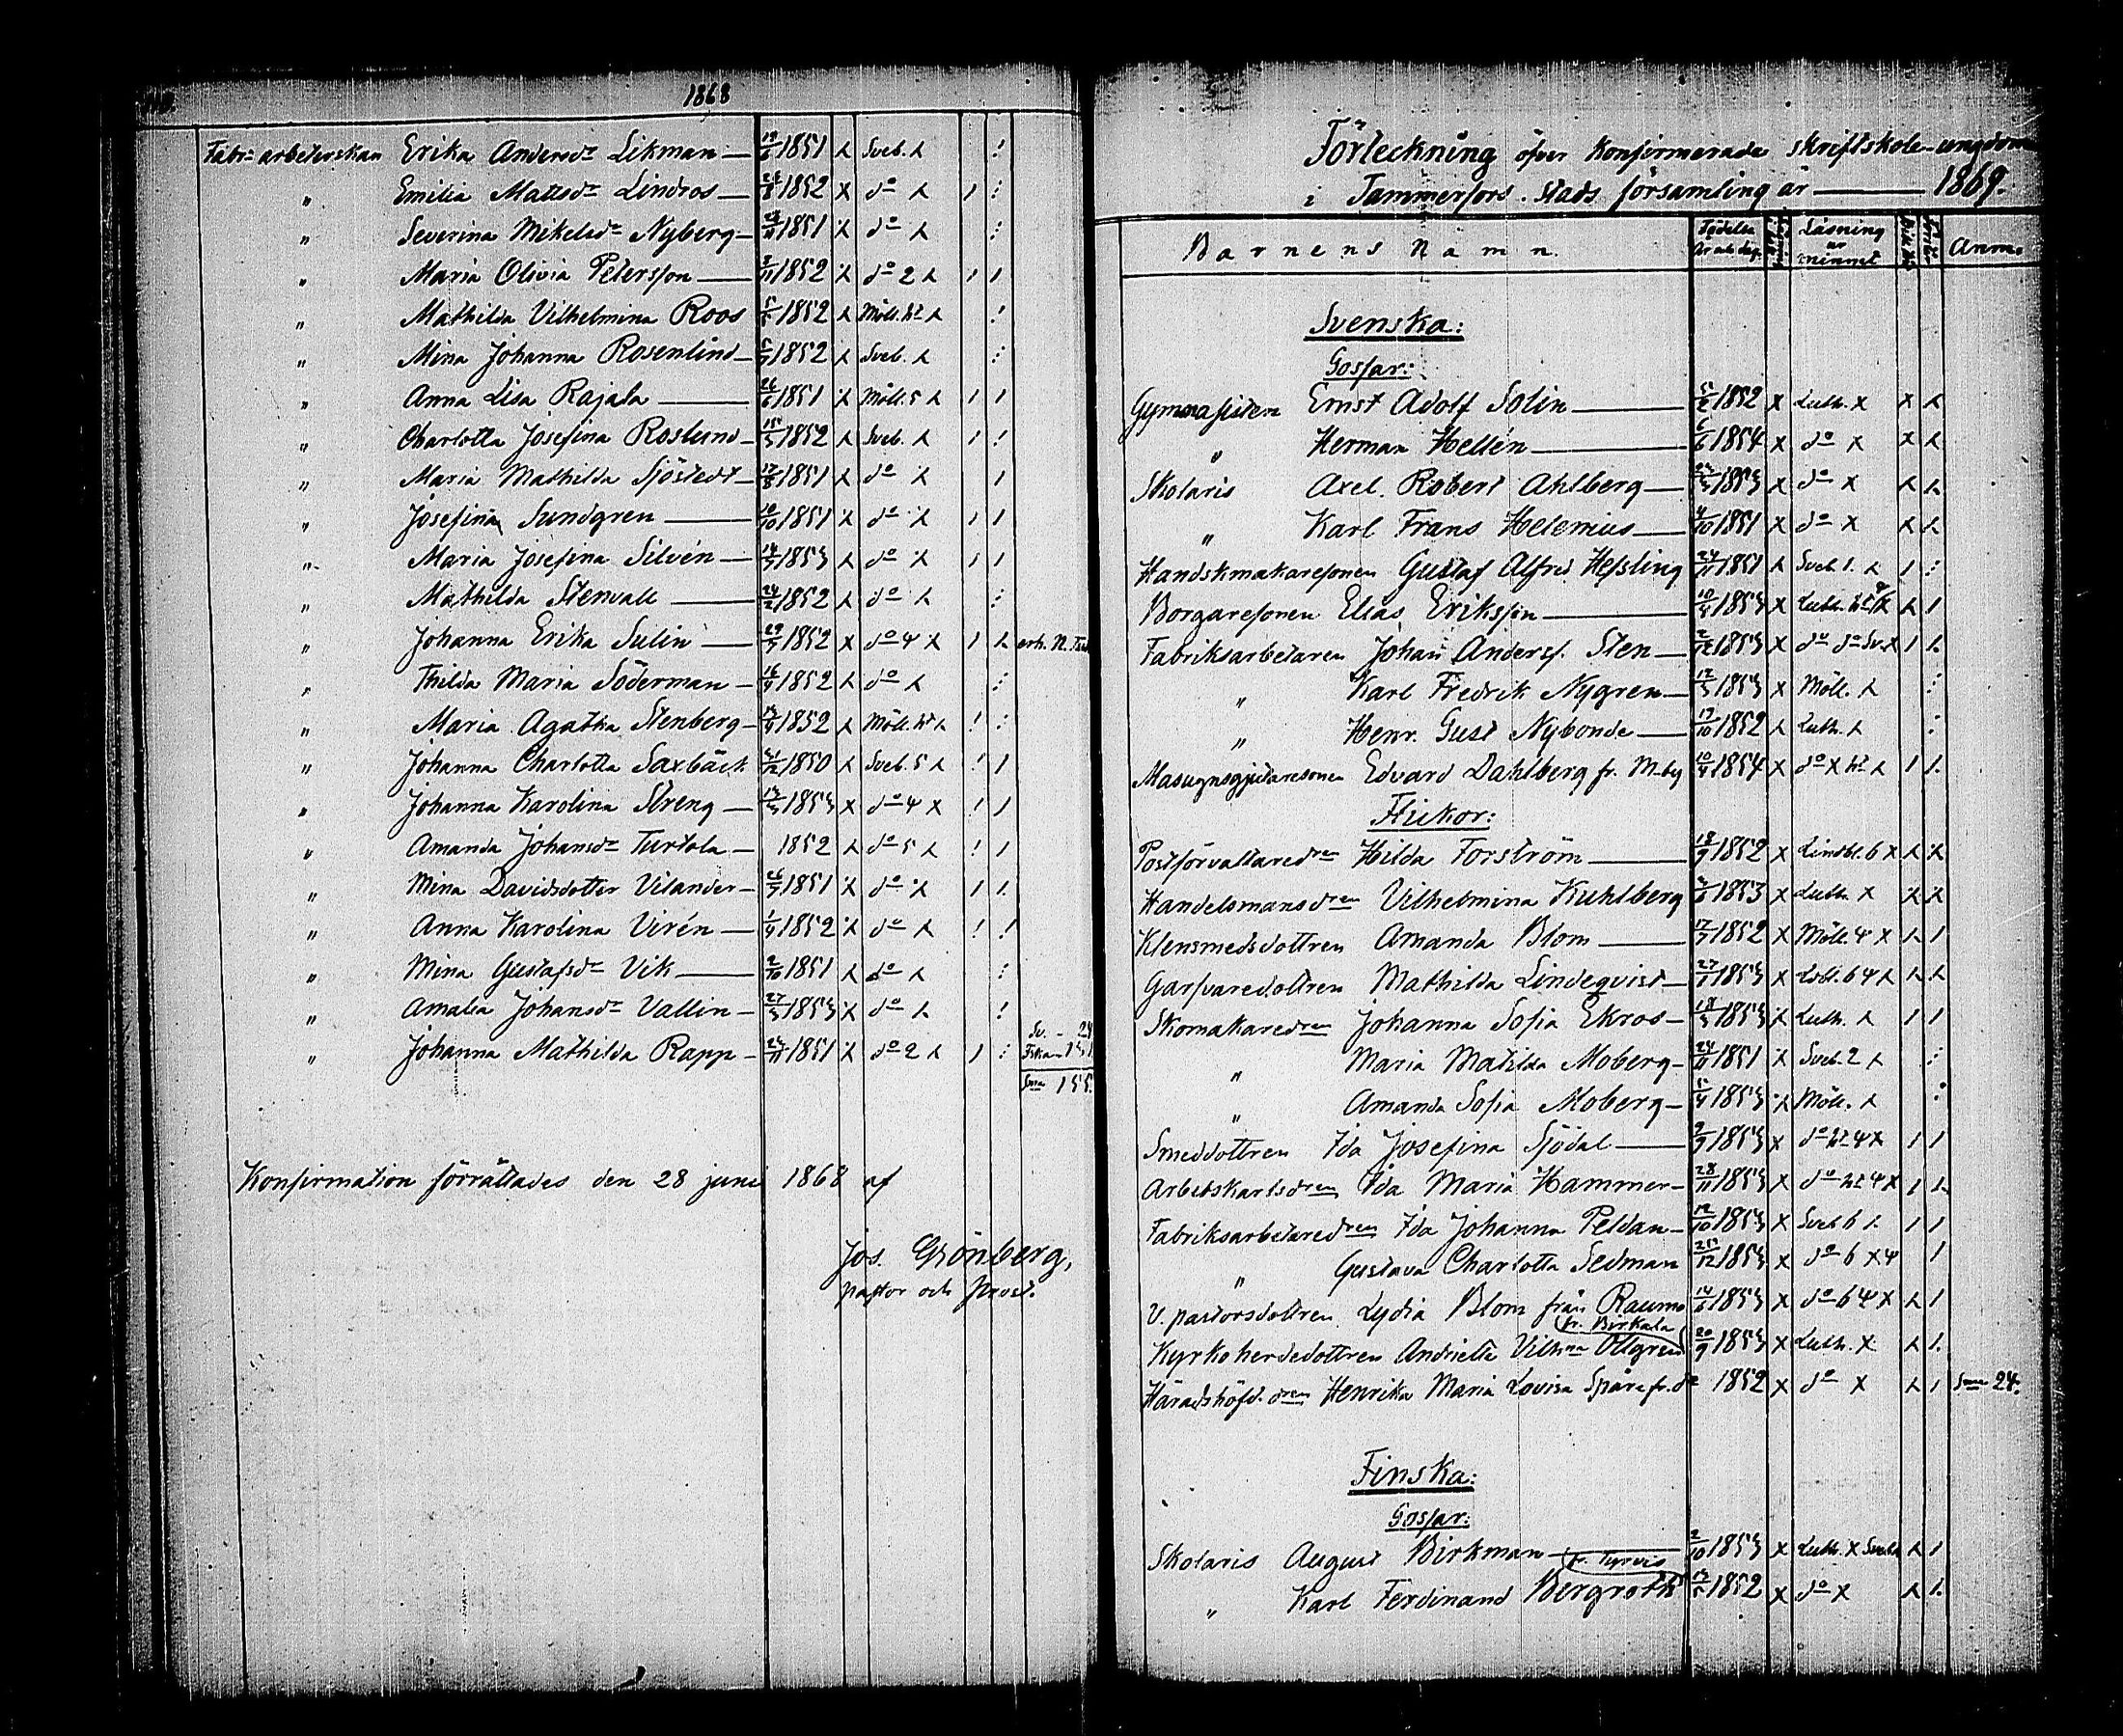 1868
Fabr. arbeterskan Erika Andersdr Likman — 19/6 1851 Sveb.
" Emilia Mattsdr Lindros — 1852 do
" Severina Mikelsdr Nyberg — 1851 do
" Maria Olivia Petersson — 1852 do 2
" Mathilda Vilhelmina Roos 1852 Möll. ht
" Mina Johanna Rosenlind — 1852 Sveb.
" Anna Lisa Rajala — 26/6 1851 Möll. 5
" Charlotta Josefina Roslund — 15/3 1852 Sveb.
" Maria Mathilda Sjöstedt — 17/8 1851 do
" Josefina Sundgren — 10/10 1851 do
" Maria Josefina Silvén — 1853 do
" Mathilda Stenvall — 24/2 1852 do
" Johanna Erika Sulin — 29/7 1852 do 4
" Thilda Maria Söderman — 16/9 1852 do
" Maria Agatha Stenberg — 1852 Möll. ht
" Johanna Charlotta Saxbäck 1850 Sveb. 5
" Johanna Karolina Streng — 1853 do 4
" Amanda Johansdr Turtola — 1852 do 5
" Mina Davidsdotter Vilander — 26/7 1851 do
" Anna Karolina Virén — 1/9 1852 do
" Mina Gustafsdr Vik — 2/10 1851 do
" Amalia Johansdr Vallin — 27/3 1853 do
Sv. - 24
" Johanna Mathilda Rapp — 1851 do 2 Fska - 131
Sma 155.
Konfirmation förrättades den 28 juni 1868 af
Jos. Grönberg,
pastor och prost.
Förteckning öfver Konfirmerade skriftskole-ungdomen
i Tammerfors Stads församling år — 1869.
Barnens Namn. Födelse år och dag. Läsning ur minnet Anm.
Svenska:
Gossar:
Gymnasisten Ernst Adolf Solin — 5/2 1852 x Luth. x
" Herman Hellén — 6/6 1854 x do x
Skolaris Axel Robert Ahlberg — 1853 x do x
" Karl Frans Helenius — 4/10 1851 x do x
Handskmakaresonen Gustaf Alfred Hessling 24/11 1851 Sveb 1.
Borgaresonen Elias Eriksson — 10/4 1853 x Luth. ht
Fabriksarbetaren Johan Anderss. Sten — 2/12 1853 x do do Sv. x
" Karl Fredrik Nygren — 12/3 1853 x Möll.
" Henr. Gust Nybonde — 17/10 1852 Luth.
Masugnsgjutaresonen Edvard Dahlberg fr. M-by 10/4 1854 x do x ht
Flickor:
Postförvaltaredren Hilda Forström — 18/9 1852 x Lindbl. 6 x
Handelsmansdren Vilhelmina Kuhlberg 1853 x Luth. x
Klensmedsdottren Amanda Blom — 17/7 1852 x Möll. 4 x
Garfvaredottren Mathilda Lindeqvist — 27/1 1853 x 6 4
Skomakaredren Johanna Sofia Ekros — 18/3 1853 Luth.
" Maria Matilda Moberg — 1851 Sveb. 2
" Amanda Sofia Moberg — 5/4 1853 Möll.
Smeddottren Ida Josefina Sjödal — 9/9 1853 x do ht 4 x
Arbetskarlsdren Ida Maria Hammer — 28/11 1853 x do ht 4 x
Fabriksarbetaredren Ida Johanna Peldan — 12/10 1853 x Sveb 6
" Gustava Charlotta Sedman 25/12 1853 x do 6 x 4
V. pastorsdottren Lydia Blom från Raumo 14/6 1853 x do 6 4 x
fr. Birkala
Kyrkoherdedottren Andriette Vilhna Ottgren 20/9 1853 x Luth. x
Häradshöfd. dren Henrika Maria Lovisa Spåre fr. do 1852 x do x Sma 24.
Finska:
Gossar:
Skolaris August Birkman — 2/10 1853 x Luth. x Sveb
fr. Tyrvis
" Karl Ferdinand Bergroth 13/5 1852 x do x